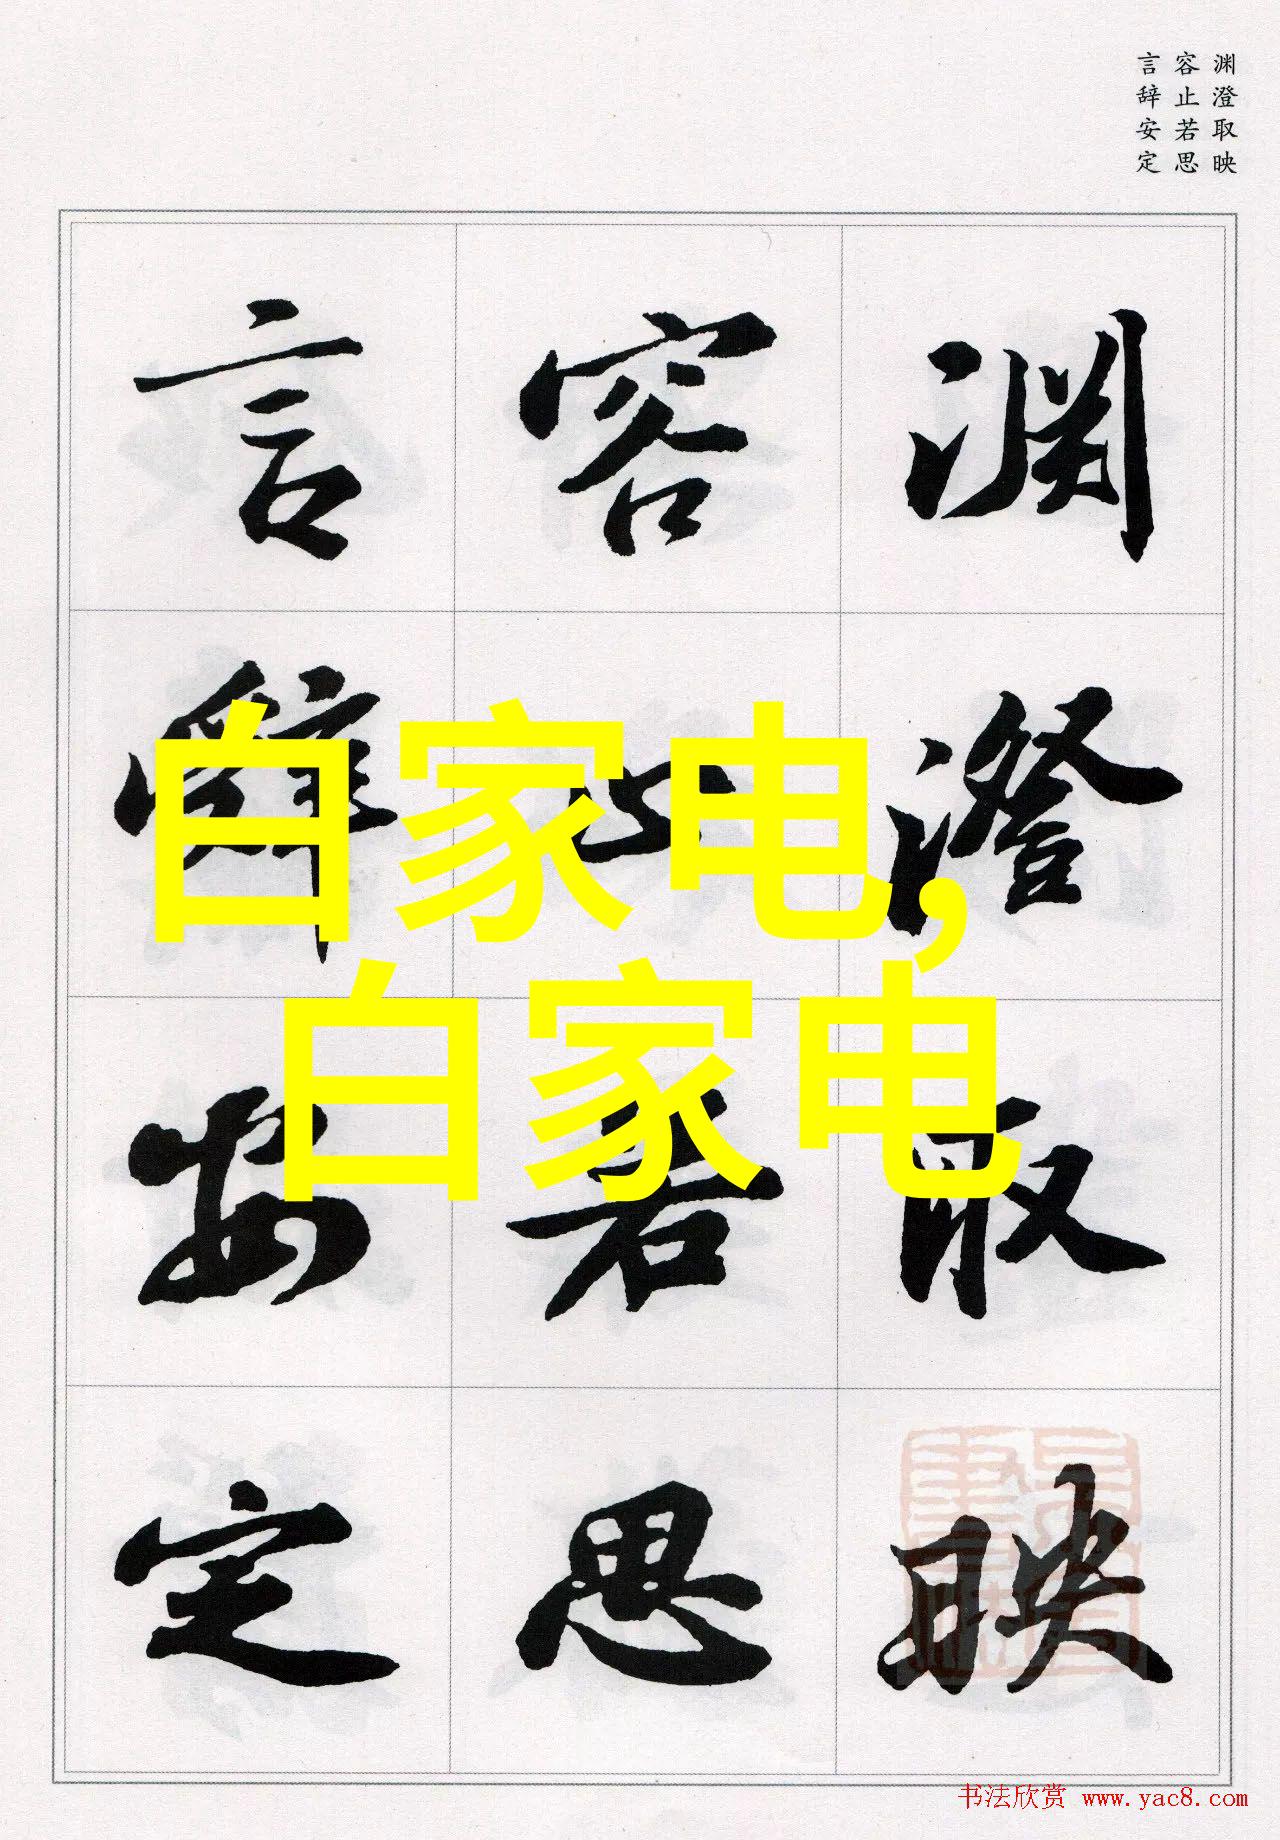 渊澄取映
容止若思
言辞安定
渊澄取映
容止若思
言辞安定
白家电,
白家电
书法欣赏 www.yac8.com